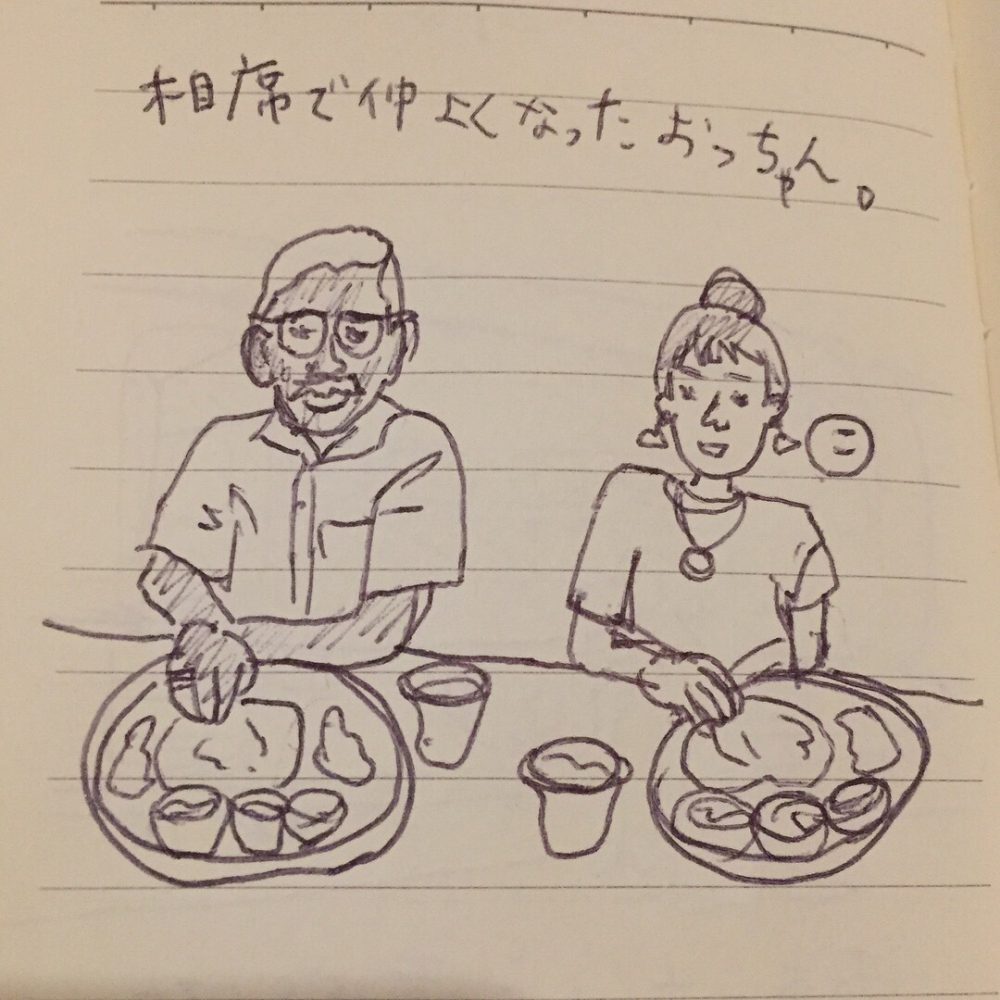 相席で仲よくなったおっちゃん。
こ